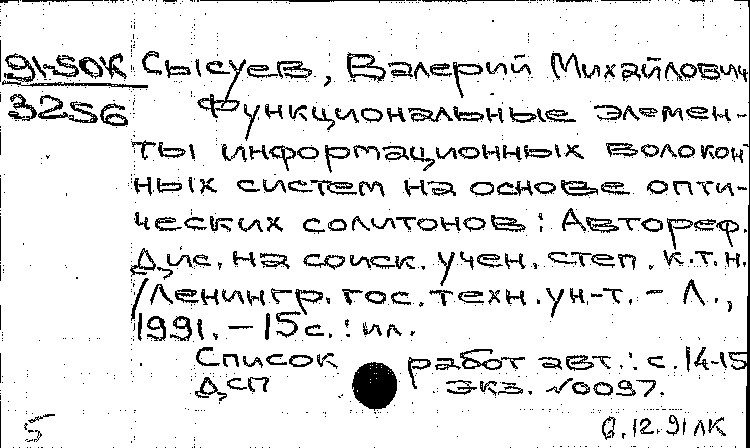 91-50К Сысуев, Валерий Михайлович
3256 Функциональные элемен-
ты информационных волокон-
ных систем на основе опти-
ческих солитонов : Автореф.
Дис. на соиск. учен. степ. к.т.н.
/Ленингр. гос. техн. ун-т. – Л.,
1991. – 15 с. : ил.
Список работ авт. : с. 14-15
ДСП экз. №0097.
5 6.12.91 ЛК